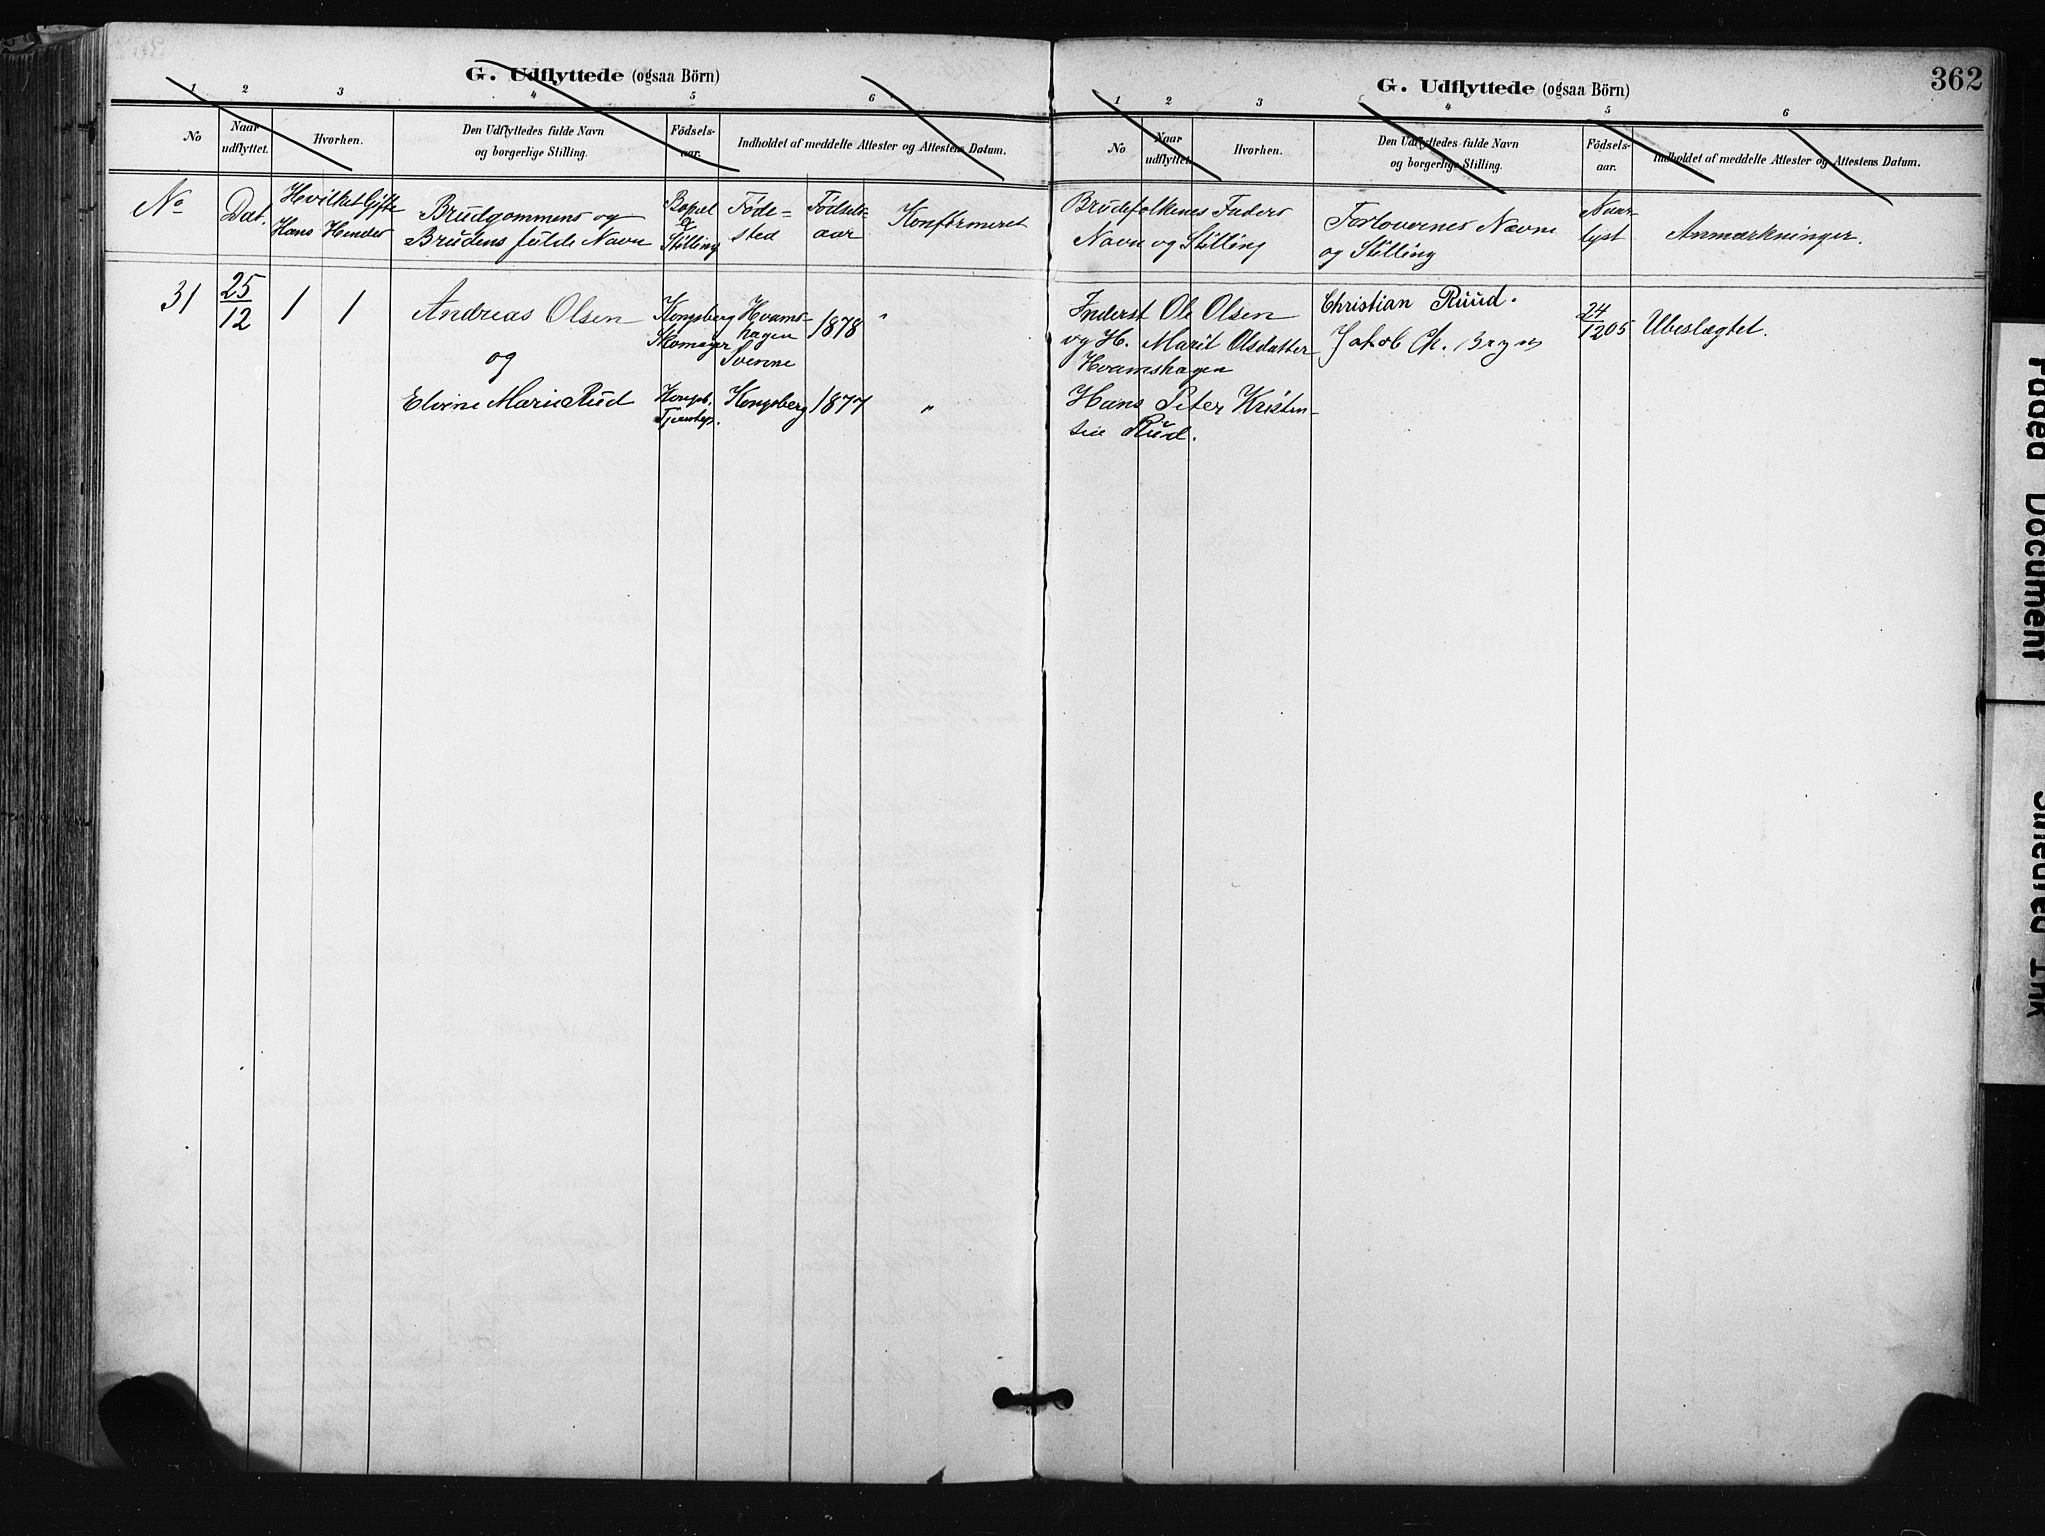 G. Udflyttede (ogsaa Börn)
1 2 3 4 5 6
No
Naar udflyttet.
Hvorhen.
Den Udflyttedes fulde Navn
og borgerlige Stilling.
Födsels-
aar.
Indholdet af meddelte Attester og Attestens Datum.
No
Dat.
Hvilket Gifte
Hans Hendes
Brudgommens og
Brudens fulde Navn
Bopæl
&
Stilling
Føde=
sted
Fødsels-
aar
Konfirmeret
31
25
12
1
1
Andreas Olsen
og
Elvine Marie Rud
Kongsberg
Skomager
Hvams-
hagen
Svenne
1878
"
Kongsb.
Tjenstep.
Kongsberg
1877
"
G. Udflyttede (ogsaa Börn)
362
1 2 3 4 5 6
No
Naar
udflyttet
Hvorhen.
Den Udflyttedes fulde Navn
og borgerlige Stilling.
Födsels-
aar.
Indholdet af meddelte Attester og Attestens Datum.
Brudefolkenes Faders
Navn og Stilling
Forlovernes Navne
og Stilling
Naar
lyst
Anmærkninger.
Inderst Ole Olsen
og H. Marit Olsdatter
Hvamshagen
Hans Peter Kristen-
sen Rud.
Christian Ruud.
Jakob Ch. Bryn
24
12 05
Ubeslægtet.
Faded Document
Smeared Ink